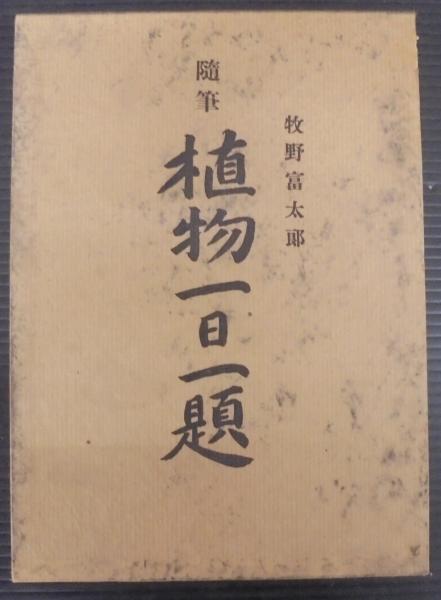 牧野富太郎
隨筆
植物一日一題